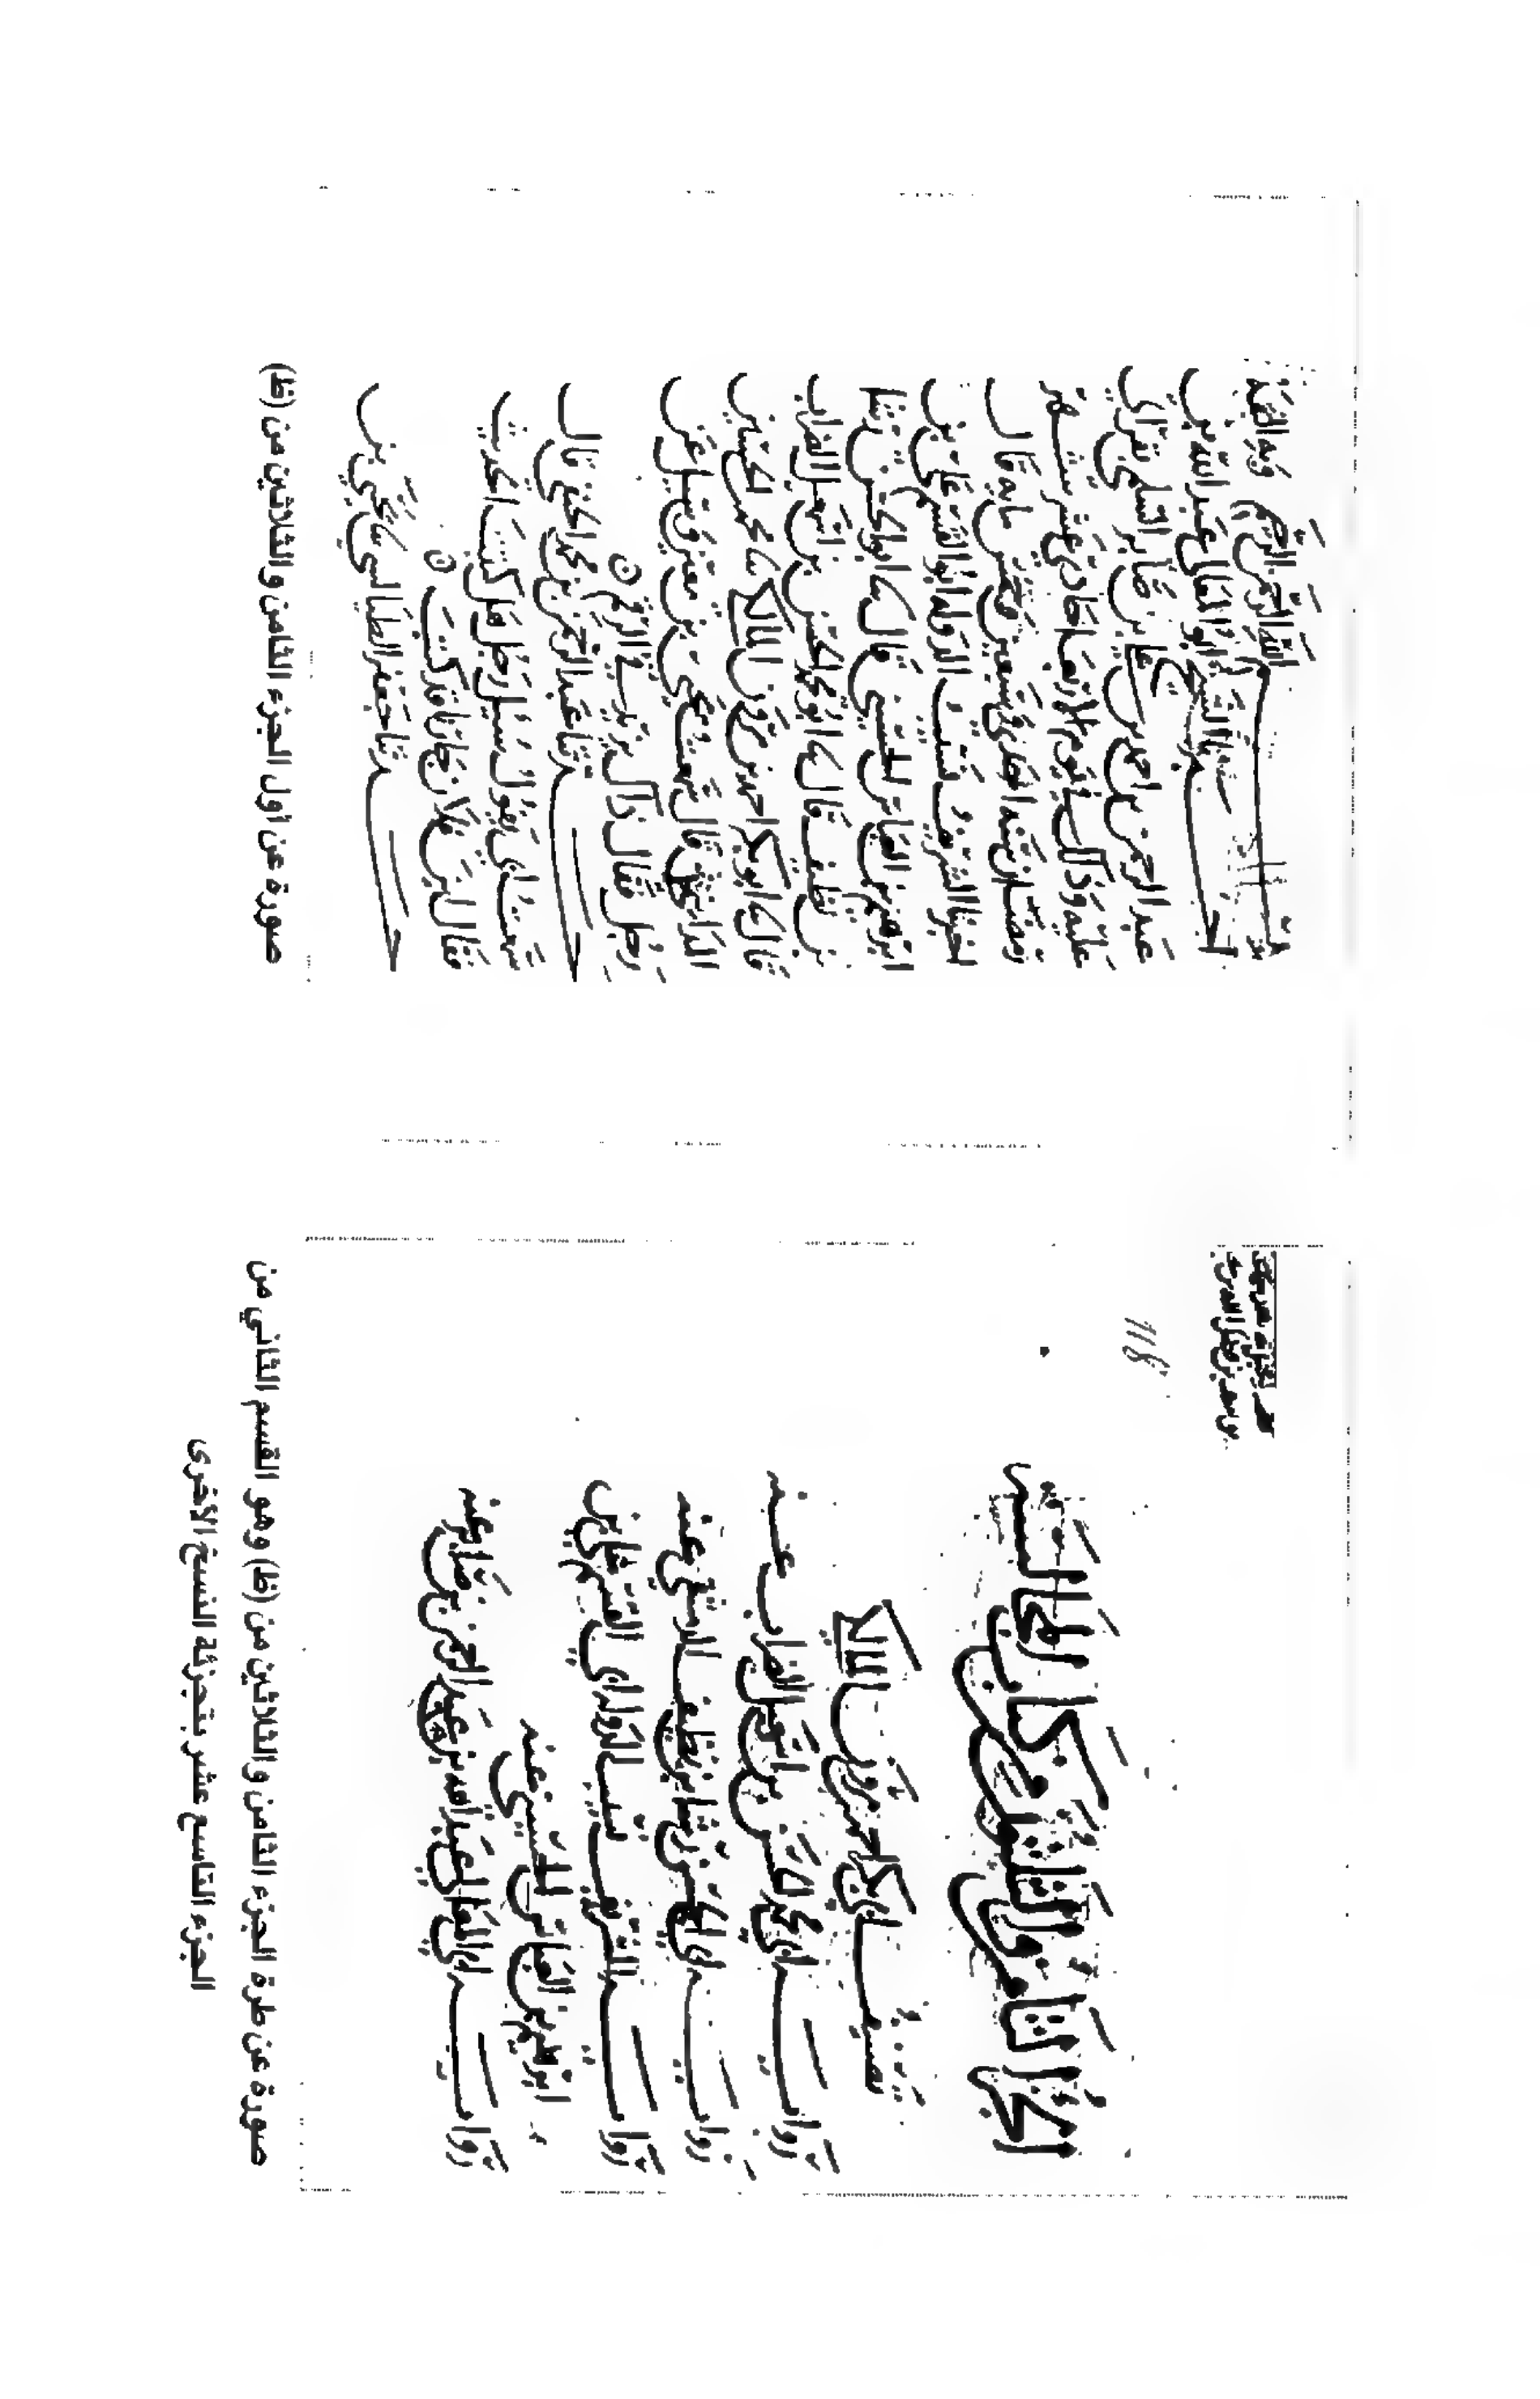 الجزء الثامن والثلاثون من كتاب المجالسة
تصنيف ابي بكر احمد بن مروان المالكي
رواية ابي محمد الحسن بن اسمعيل الضراب عنه
رواية ابي الحسن رشا بن نظيف الدمشقي عنه
رواية الشريف نسيب الدولة ابي القسم علي بن
ابرهيم بن العباس الحسيني عنه
رواية ابي المعالي عبد الله بن عبد الرحمن بن صابر عنه
118
صورة عن طرة الجزء الثامن والثلاثين من (ظ) وهو القسم الثاني من
الجزء التاسع عشر بتجزئة النسخ الأخرى
بسم الله الرحمن الرحيم وبه الثقة
اخبرنا الشيخ ابو المعالي عبد الله بن
عبد الرحمن بن احمد بن علي بن صابر السلمي بقراءتي
عليه وذلك في يوم الاربعا حادي عشر شهر
رمضان سنة احدى وسبعين وخمس مايه قال
اخبرنا الشريف نسيب الدولة ابو القسم علي بن
ابرهيم بن العباس الحسيني قال نا ابو الحسن رشا
بن نظيف قال نا ابو محمد الحسن بن اسمعيل الضراب
قال نا ابو بكر احمد بن مروان المالكي نا محمد بن
قال سمعت يحيى بن معين وسئل عن
رجل فقال ذاك يزيد في الرقم
حدثنا عبد الرحمن بن محمد الحنفي قال
سمعت ابي يقول سئل رجل هل كتبت الحديث
فقال ليس عن كتبت
حدثنا جعفر الطيالسي نا يحيى بن
صورة عن أول الجزء الثامن والثلاثين من (ظ)